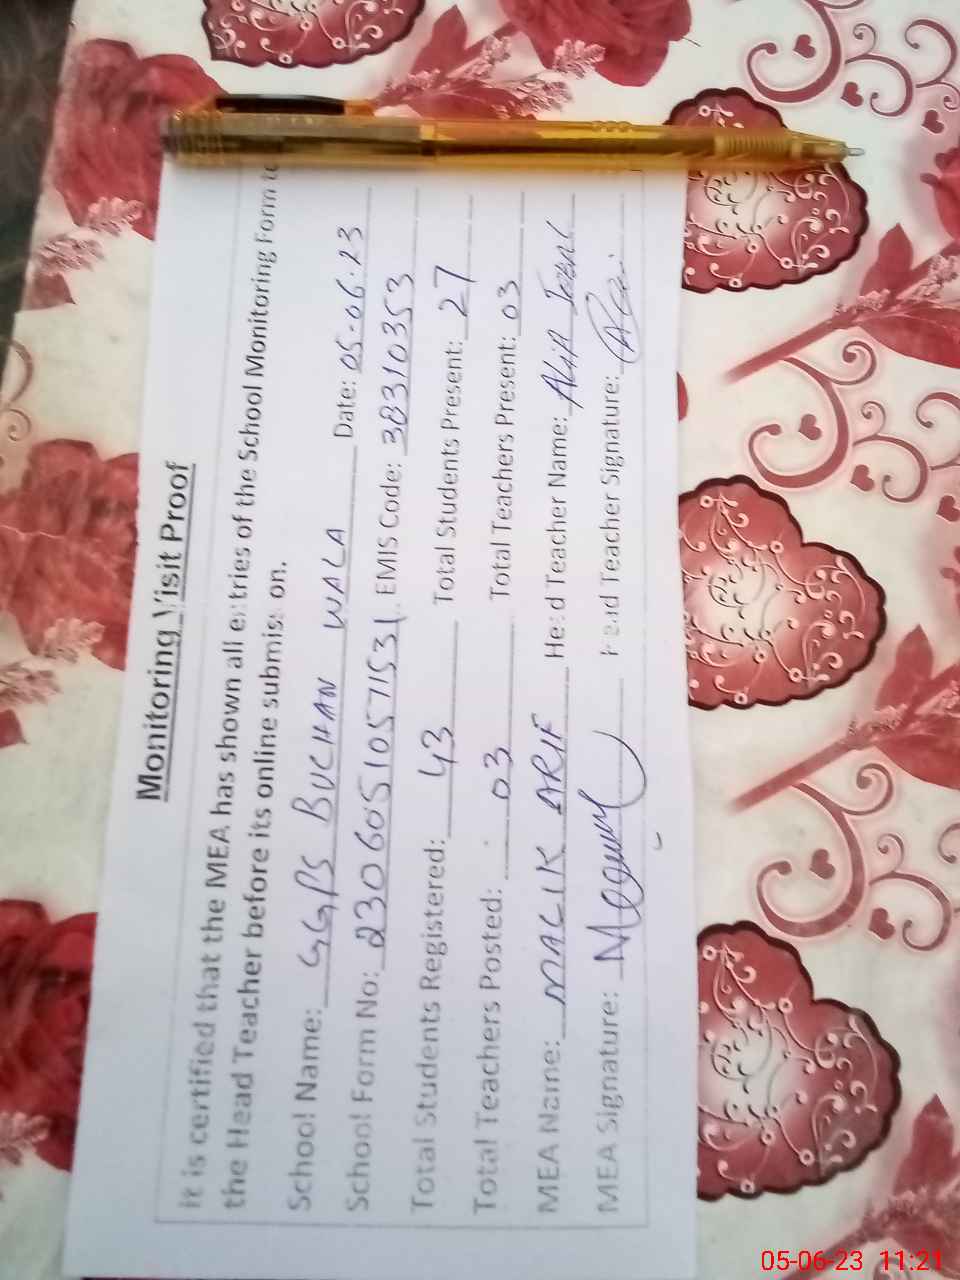 Monitoring Visit Proof
It is certified that the MEA has shown all entries of the School Monitoring Form to
the Head Teacher before its online submission.
School Name: GGPS BUCHAN WALA Date: 05-06-23
School Form No: 23060510571531 EMIS Code: 38310353
Total Students Registered: 43 Total Students Present: 27
Total Teachers Posted: 03 Total Teachers Present: 03
MEA Name: MALIK ARIF Head Teacher Name:
MEA Signature: Head Teacher Signature:
05-06-23 11:21